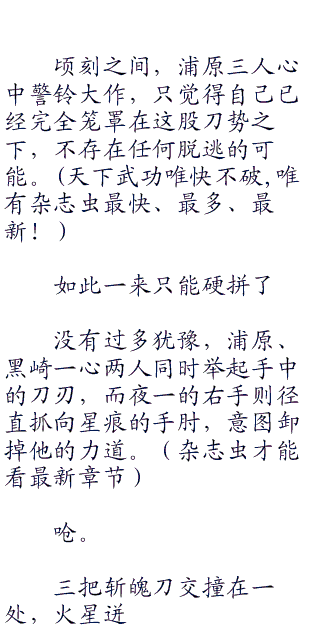 顷刻之间，浦原三人心
中警铃大作，只觉得自己已
经完全笼罩在这股刀势之
下，不存在任何脱逃的可
能。(天下武功唯快不破,唯
有杂志虫最快、最多、最
新！)
如此一来只能硬拼了
没有过多犹豫，浦原、
黑崎一心两人同时举起手中
的刀刃，而夜一的右手则径
直抓向星痕的手肘，意图卸
掉他的力道。（杂志虫才能
看最新章节）
呛。
三把斩魄刀交撞在一
处，火星迸